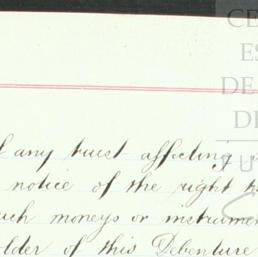 CE
ES
DE
DE
TU
any trust affecting
notice of the right
such moneys or instrumen
older of this Debenture